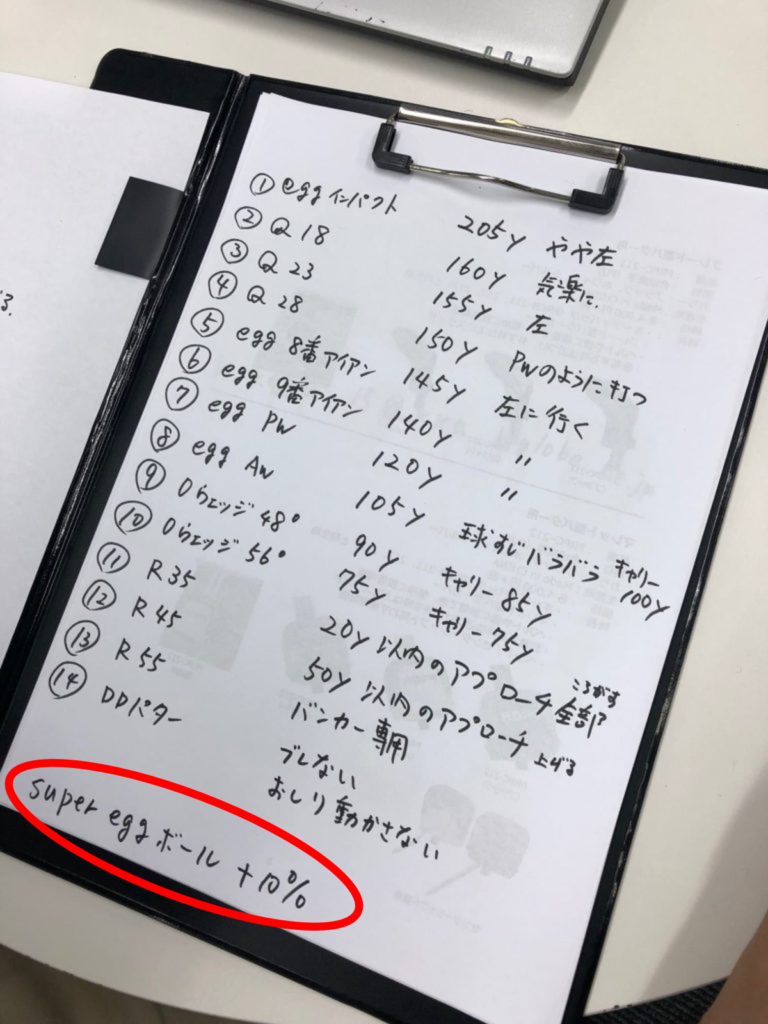 ① egg インパクト 205y やや左
② Q18 160y 気楽に.
③ Q23 155y 左
④ Q28 150y PWのように打つ
⑤ egg 8番アイアン 145y 左に行く
⑥ egg 9番アイアン 140y 〃
⑦ egg PW 120y 〃
⑧ egg AW 105y 球すじバラバラ キャリー100y
⑨ 0ウェッジ48° 90y キャリー85y
⑩ 0ウェッジ56° 75y キャリー75y
⑪ R35 20y以内のアプローチ全部 ころがす
⑫ R45 50y以内のアプローチ 上げる
⑬ R55 バンカー専用
⑭ DDパター ブレない
おしり動かさない
super egg ボール +10%